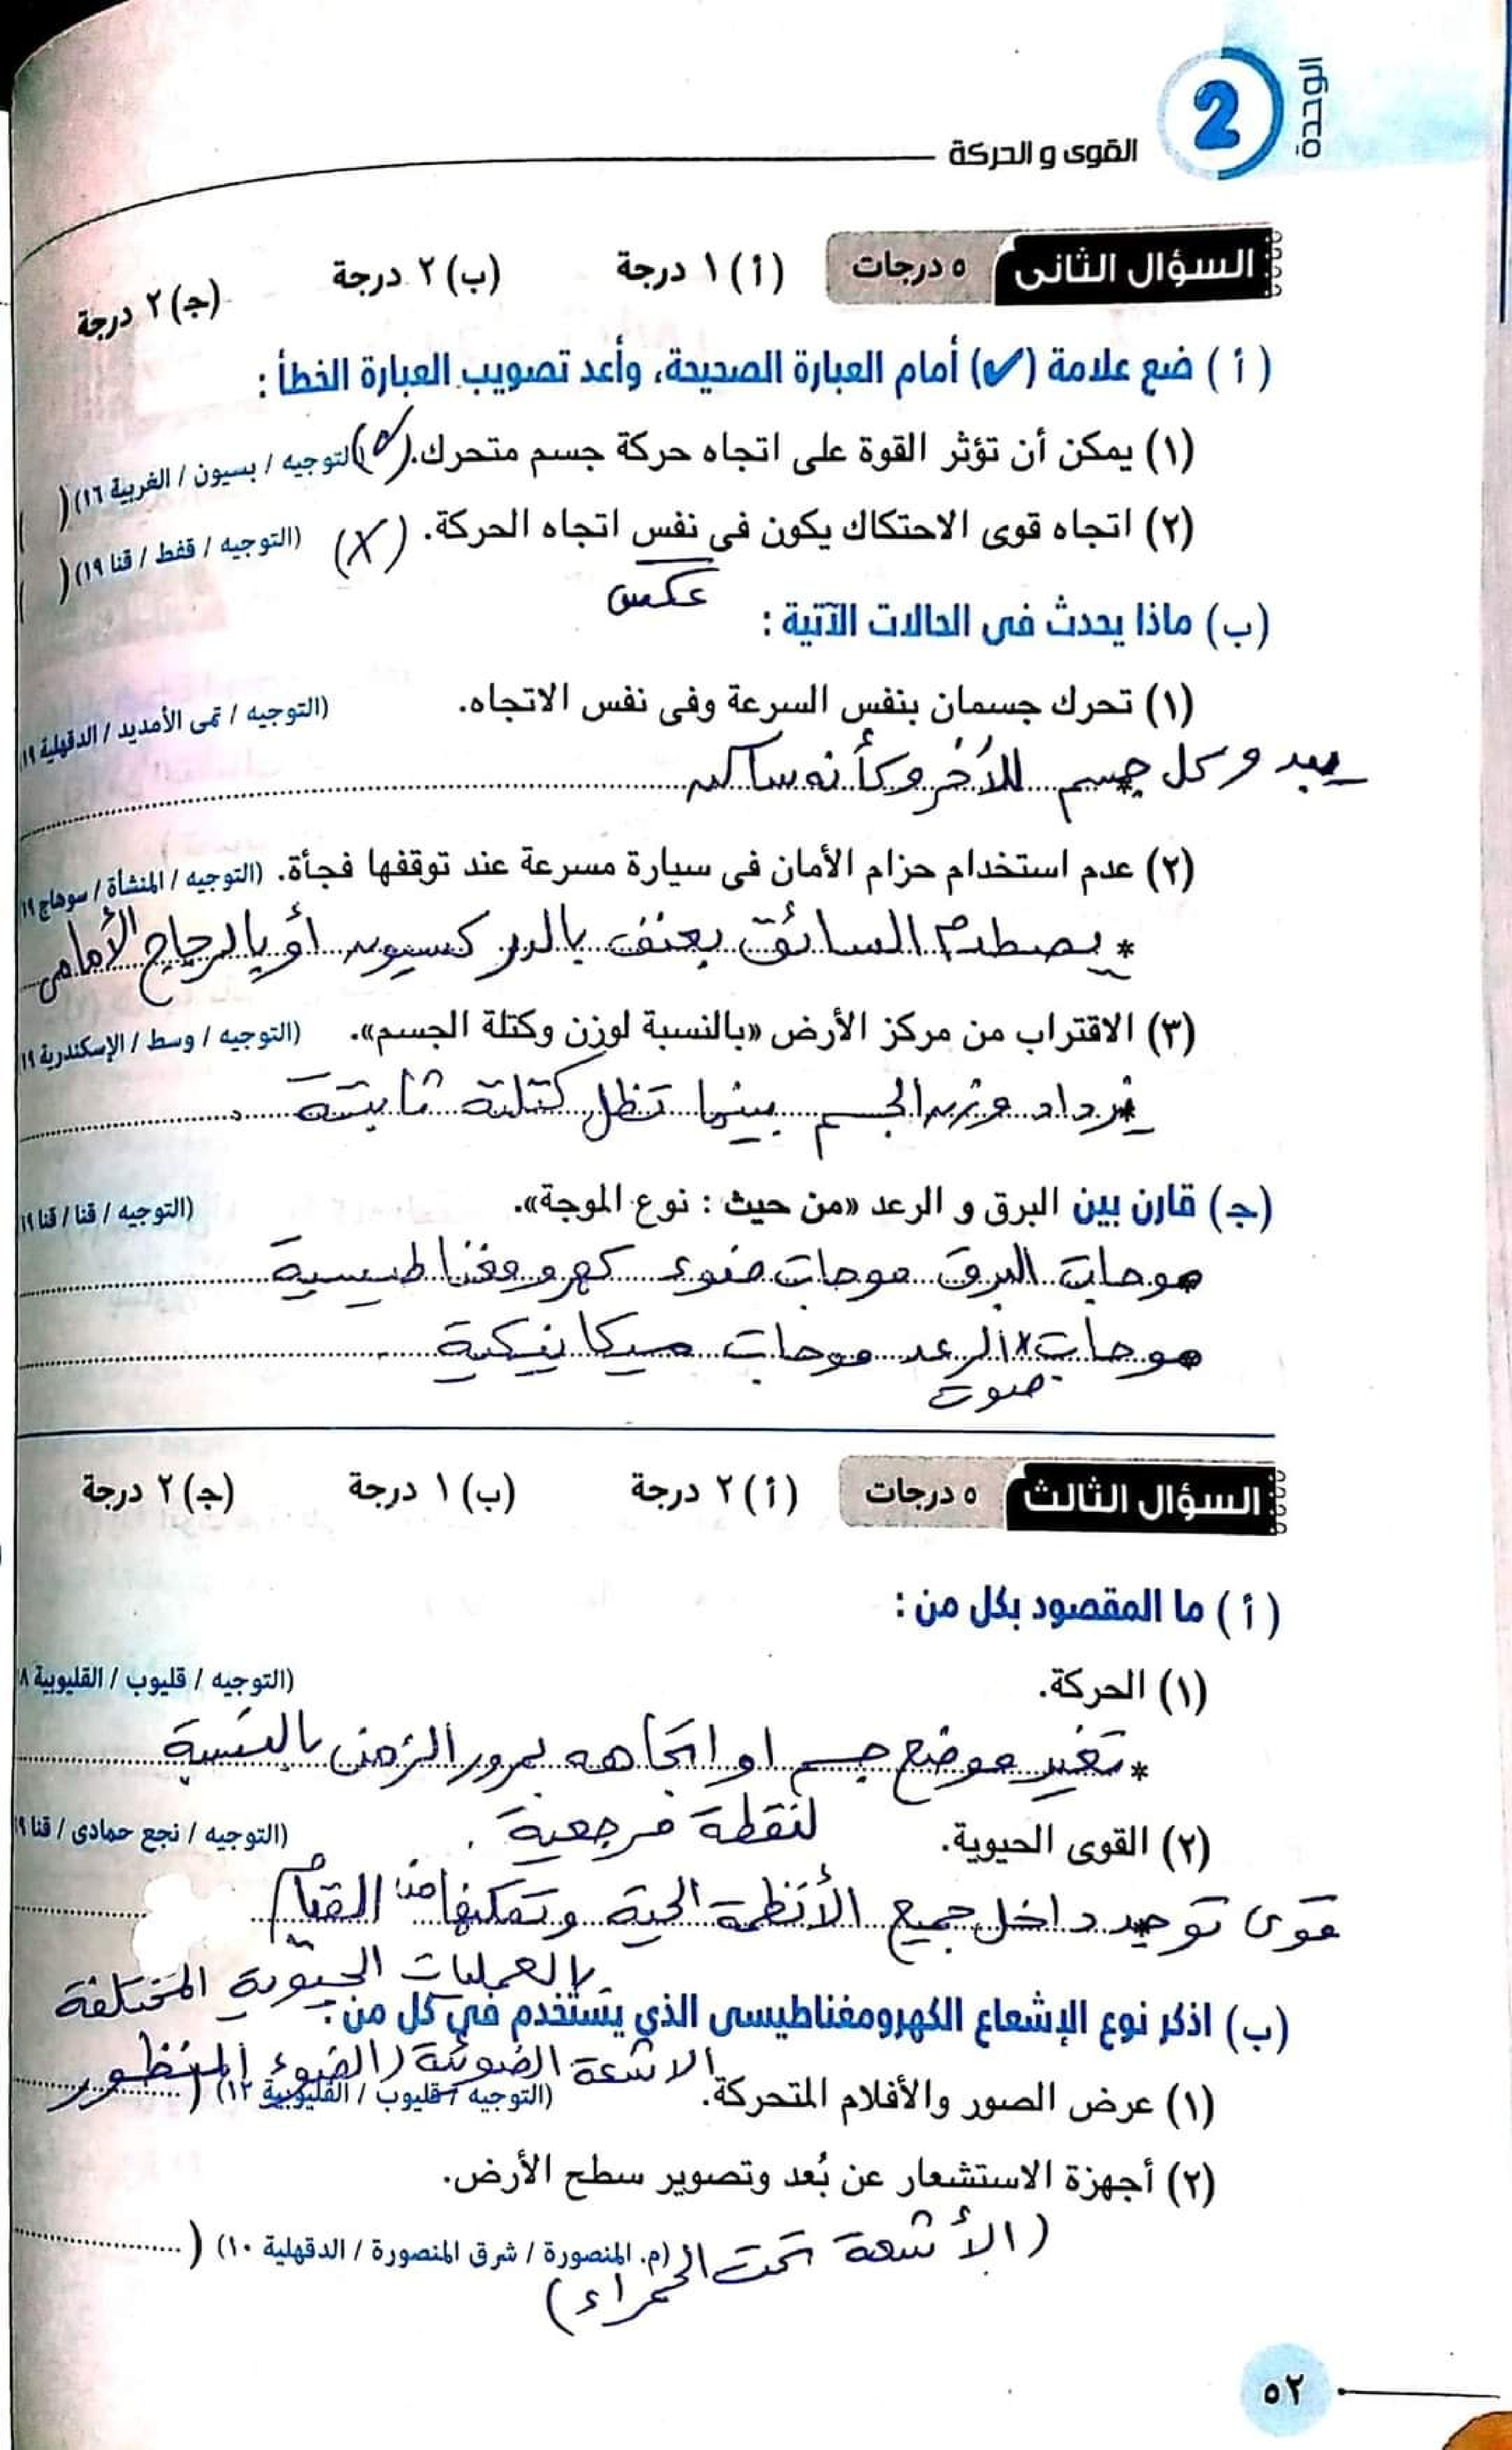 الوحدة
2
القوى و الحركة
السؤال الثانى ٥ درجات (أ) ١ درجة (ب) ٢ درجة (جـ) ٢ درجة
(أ) ضع علامة (✔) أمام العبارة الصحيحة، وأعد تصويب العبارة الخطأ :
(١) يمكن أن تؤثر القوة على اتجاه حركة جسم متحرك. (✓) (التوجيه / بسيون / الغربية ١٦) ( )
(٢) اتجاه قوى الاحتكاك يكون فى نفس اتجاه الحركة. (X) (التوجيه / قفط / قنا ١٩) ( )
عكس
(ب) ماذا يحدث فى الحالات الآتية :
(١) تحرك جسمان بنفس السرعة وفى نفس الاتجاه. (التوجيه / تمى الأمديد / الدقهلية ١٩
يبدو كل جسم للأخر وكأنه ساكن
(٢) عدم استخدام حزام الأمان فى سيارة مسرعة عند توقفها فجأة. (التوجيه / المنشأة / سوهاج ١٩
* يصطدم السائق بعنف بالدركسيون أو بالزجاج الأمامى
(٣) الاقتراب من مركز الأرض «بالنسبة لوزن وكتلة الجسم». (التوجيه / وسط / الإسكندرية ١٩
يزداد وزن الجسم بينما تظل كتلته ثابتة
(جـ) قارن بين البرق و الرعد «من حيث : نوع الموجة». (التوجيه / قنا / قنا ١٩
موجات البرق موجات ضوء كهرومغناطيسية
موجات الرعد موجات ميكانيكية
صوت
السؤال الثالث ٥ درجات (أ) ٢ درجة (ب) ١ درجة (جـ) ٢ درجة
(أ) ما المقصود بكل من :
(١) الحركة. (التوجيه / قليوب / القليوبية ٨
* تغير موضع جسم او اتجاهه بمرور الزمن بالنسبة
لنقطة مرجعية .
(٢) القوى الحيوية. (التوجيه / نجع حمادى / قنا ١٩
قوى توجد داخل جميع الأنظمة الحية وتمكنها من القيام
بالعمليات الحيوية المختلفة
(ب) اذكر نوع الإشعاع الكهرومغناطيسى الذي يستخدم فى كل من :
الاشعة الضوئية (الضوء المنظور
(١) عرض الصور والأفلام المتحركة. (التوجيه / قليوب / القليوبية ١٢) (
(٢) أجهزة الاستشعار عن بُعد وتصوير سطح الأرض.
(م. المنصورة / شرق المنصورة / الدقهلية ١٠) (
(الأشعة تحت الحمراء)
٥٢